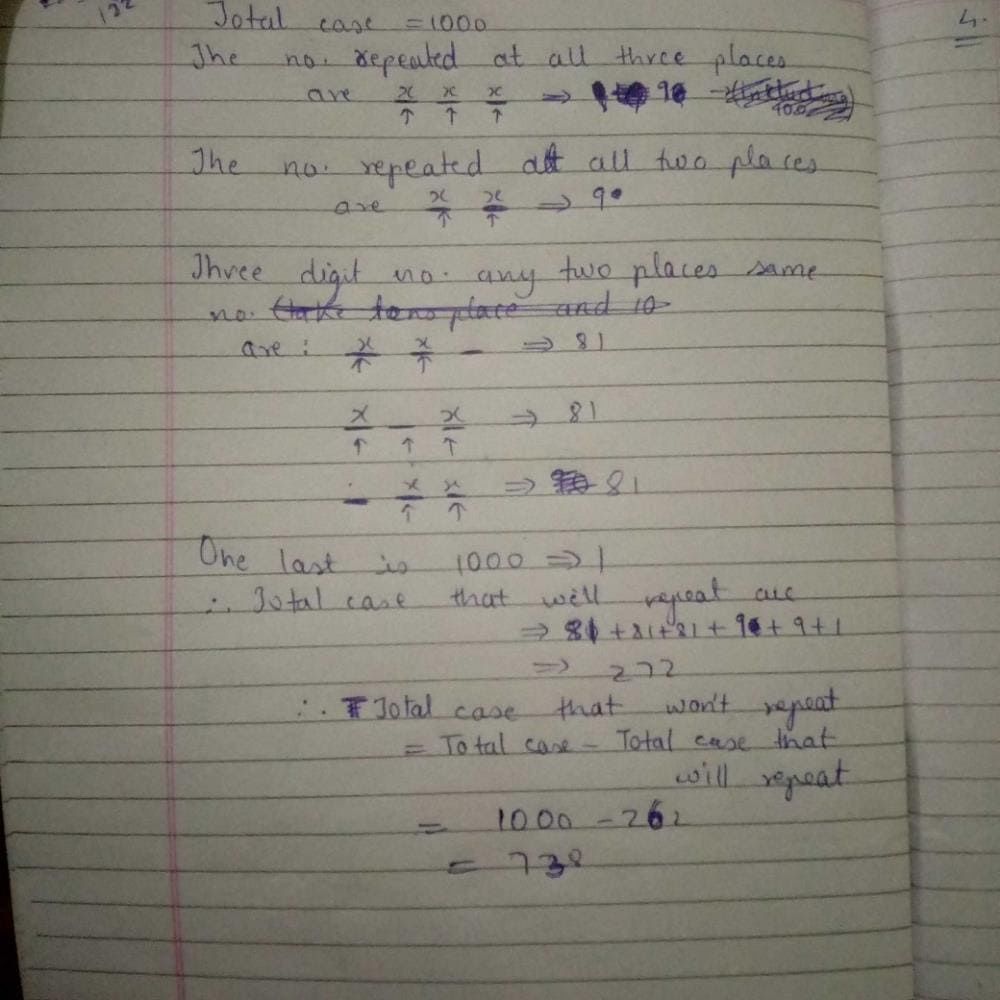 132
4.
Total case = 1000
The no. repeated at all three places
are x x x ⇒ 9
The no. repeated at all two places
are x x ⇒ 9
Three digit no. any two places same
no. (take tens place and 10
are : x x _ ⇒ 81
x _ x ⇒ 81
_ x x ⇒ 81
One last is 1000 ⇒ 1
∴ Total case that will repeat are
⇒ 81 + 81 + 81 + 9 + 9 + 1
⇒ 272
∴ Total case that won't repeat
= Total case - Total case that
will repeat
= 1000 - 262
= 738